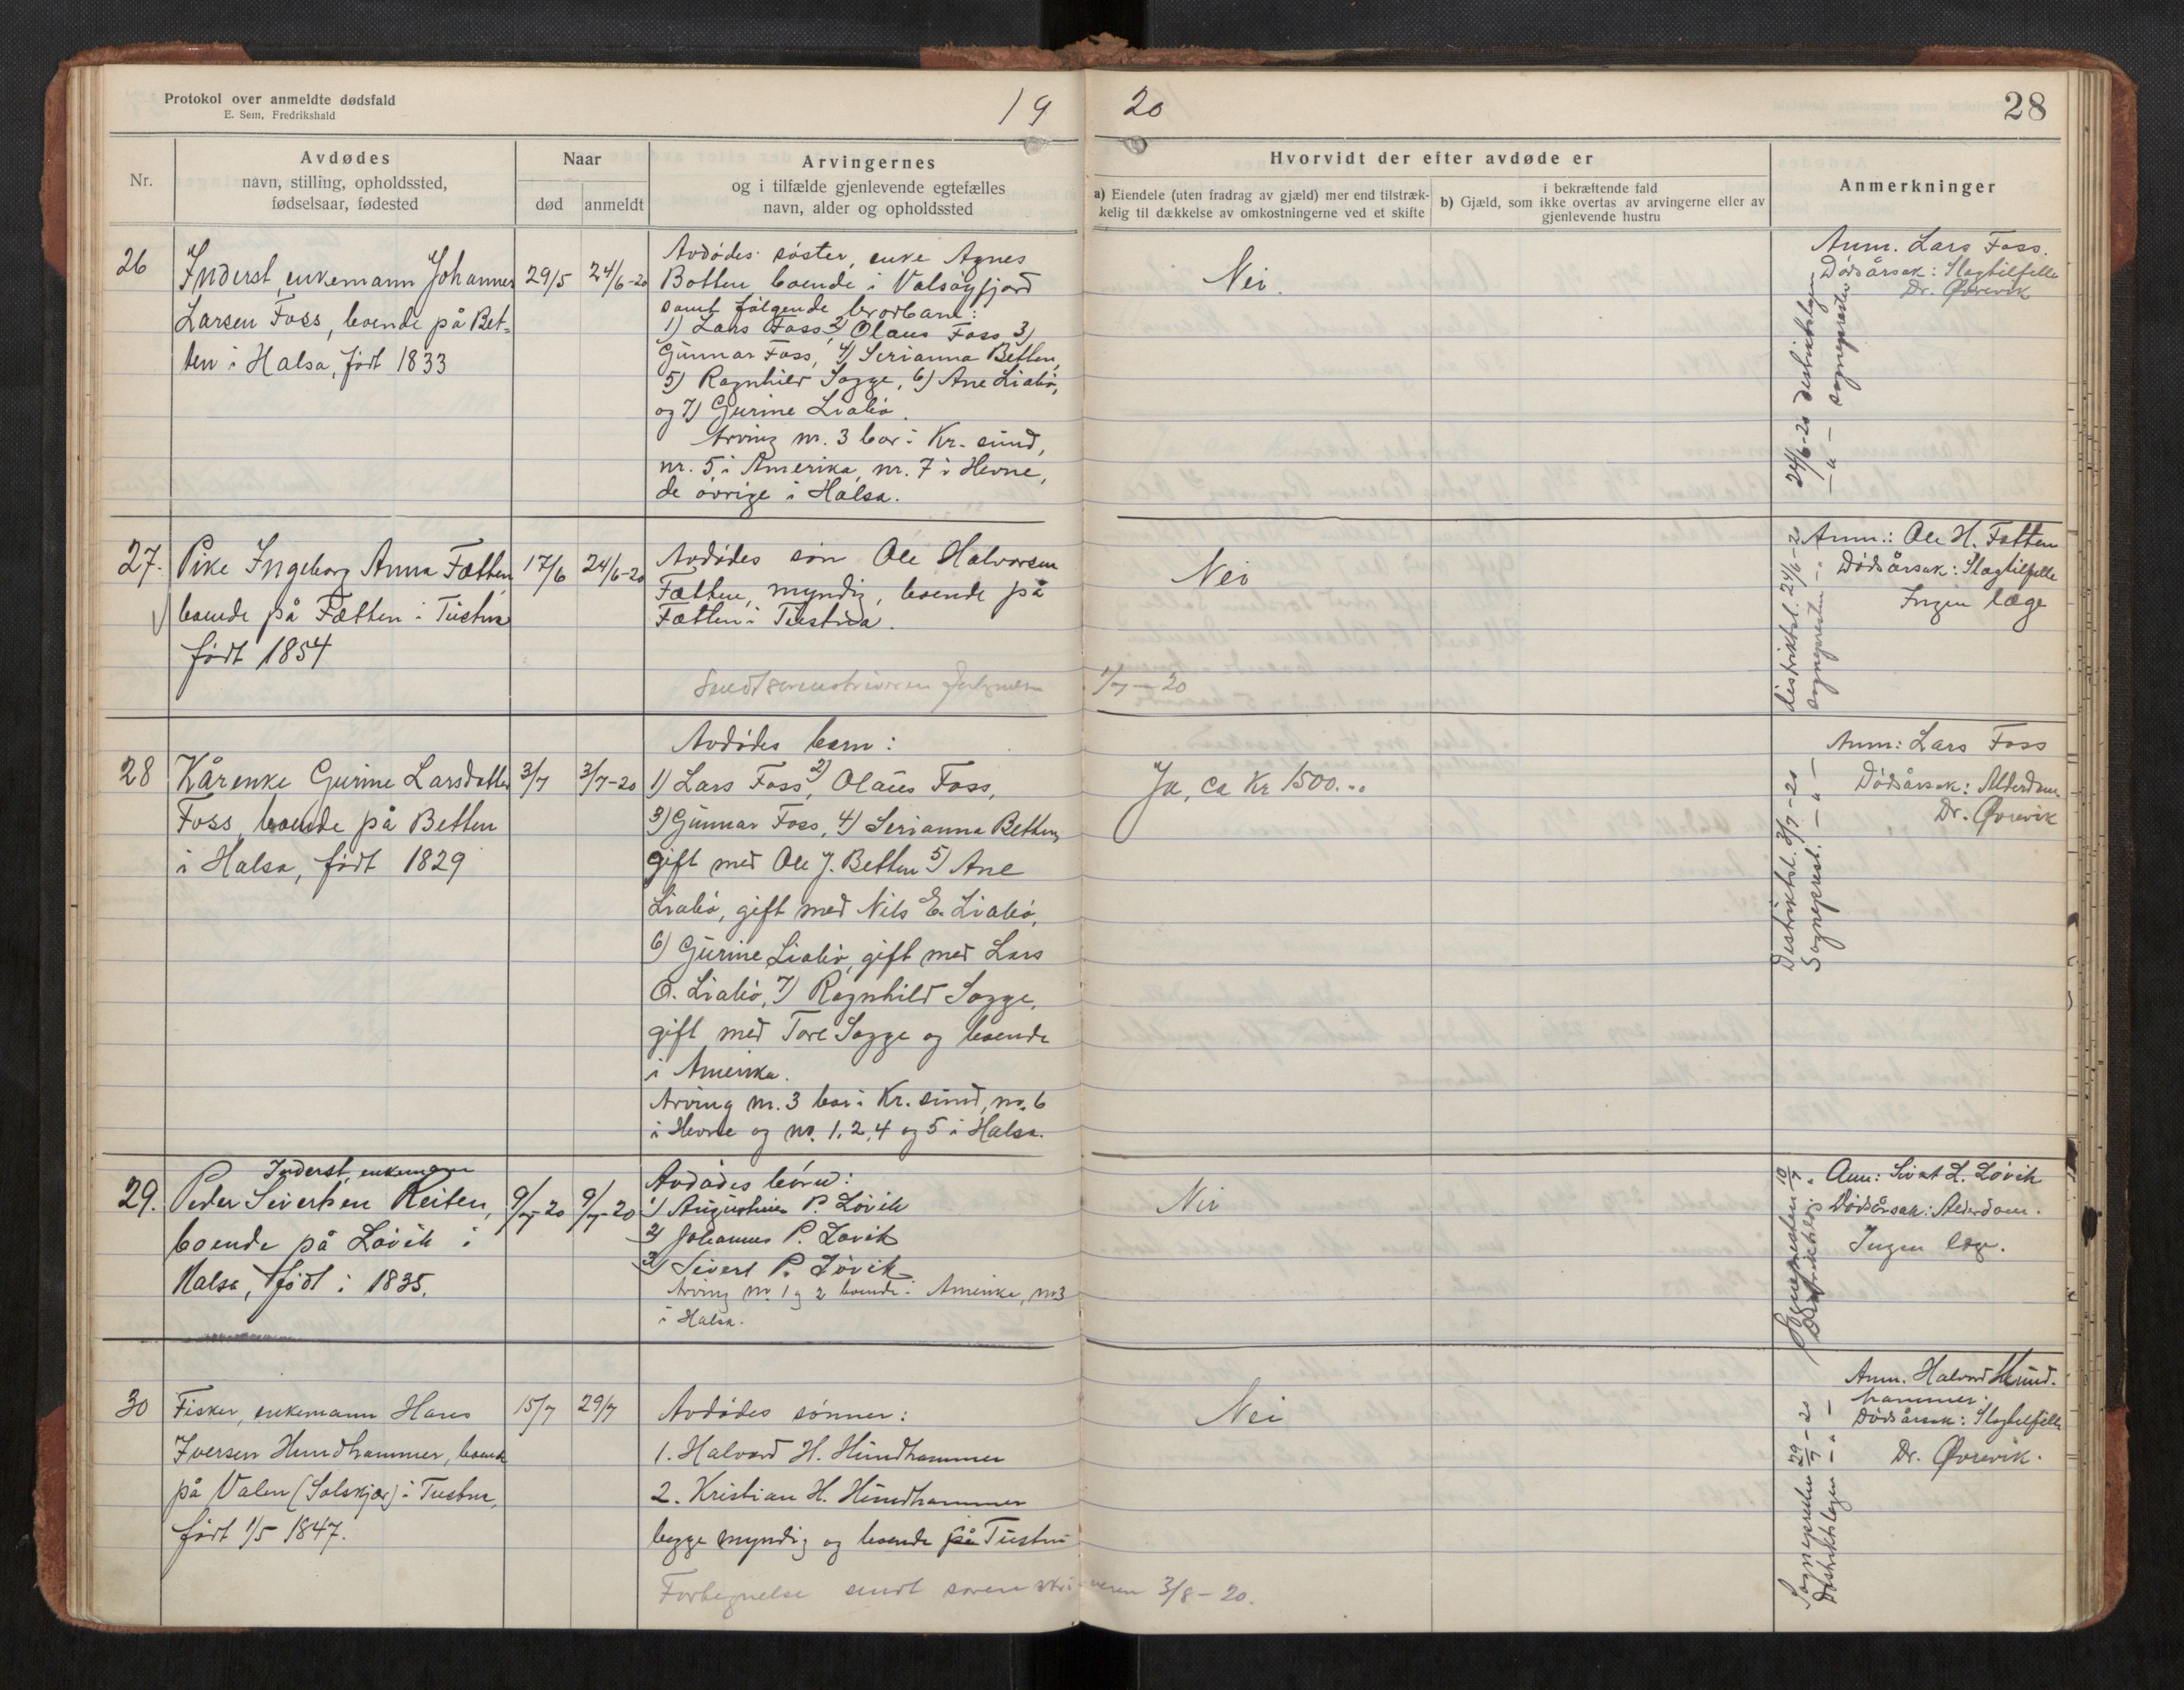 Protokol over anmeldte dødsfald
E. Sem, Fredrikshald
19
20
28
Nr.
Avdødes
navn, stilling, opholdssted,
fødselsaar, fødested
Naar
død
anmeldt
Arvingernes
og i tilfælde gjenlevende egtefælles
navn, alder og opholdssted
Hvorvidt der efter avdøde er
a) Eiendele (uten fradrag av gjæld) mer end tilstræk-
kelig til dækkelse av omkostningerne ved et skifte
i bekræftende fald
b) Gjæld, som ikke overtas av arvingerne eller av
gjenlevende hustru
Anmerkninger
26
Inderst, enkemann Johannes
Larsen Foss, boende på Bet-
ten i Halsa, født 1833
29/5
24/6-20
Avdødes søster, enke Agnes
Botten boende i Valsøyfjord
samt følgende brorbarn:
1) Lars Foss, 2) Olaus Foss 3)
Gunnar Foss, 4) Serianna Betten,
5) Ragnhild Sogge, 6) Ane Liabø,
og 7) Gurine Liabø.
Arving nr. 3 bor i Kr.sund,
nr. 5 i Amerika, nr. 7 i Hevne,
de øvrige i Halsa.
Nei.
24/6-20 distriktslegen
— " — sognepresten
Anm. Lars Foss.
Dødsårsak: Slagtilfelle
Dr. Øvrevik
27.
Pike Ingeborg Anna Fætten,
boende på Fætten i Tustna
født 1854
17/6
24/6-20
Avdødes søn Ole Halvorsen
Fætten, myndig, boende på
Fætten i Tustna.
Sendt sorenskriveren
1/7-20
Nei
distriktsl. 24/6-20
sognepresten - " -
Anm.: Ole H. Fætten
Dødsårsak: Slagtilfelle
Ingen læge
28
Kårenke Gurine Larsdatter
Foss, boende på Betten
i Halsa, født 1829
3/7
3/7-20
Avdødes barn:
1) Lars Foss, 2) Olaus Foss,
3) Gunnar Foss, 4) Serianna Betten,
gift med Ole J. Betten 5) Ane
Liabø, gift med Nils E. Liabø,
6) Gurine Liabø, gift med Lars
O. Liabø, 7) Ragnhild Sogge,
gift med Tore Sogge og boende
i Amerika.
Arving nr. 3 bor i Kr.sund, nr. 6
i Hevne og nr. 1, 2, 4 og 5 i Halsa.
Ja, ca Kr 1500.-
Distriktsl. 3/7-20
Sogneprest. — " —
Anm: Lars Foss
Dødsårsak: Alderdom
Dr. Øvrevik
29.
Inderst, enkemann
Peder Sivertsen Reiten,
boende på Løvik i
Halsa, født i 1835.
9/7-20
9/7-20
Avdødes børn:
1) P. Løvik
2) Johannes P. Løvik
3) Sivert P. Løvik
Arving nr. 1 og 2 boende i Amerika, nr 3
i Halsa.
Nei
Sognepresten 10/7
Anm: Sivert L. Løvik
Dødsårsak: Alderdom.
Ingen læge.
30
Fisker, enkemann Hans
Iversen Hundhammer, boende
på Valen (Solskjær) i Tustna,
født 1/5 1847.
15/7
29/7
Avdødes sønner:
1. Halvard H. Hundhammer
2. Kristian H. Hundhammer
begge myndig og boende på Tustna
Fortegnelse sendt sorenskriveren 3/8-20.
Nei
Sognepresten 29/7-20
Distriktslegen — " —
Anm. Halvard Hund-
hammer.
Dødsårsak: Slagtilfelle
Dr. Øvrevik.